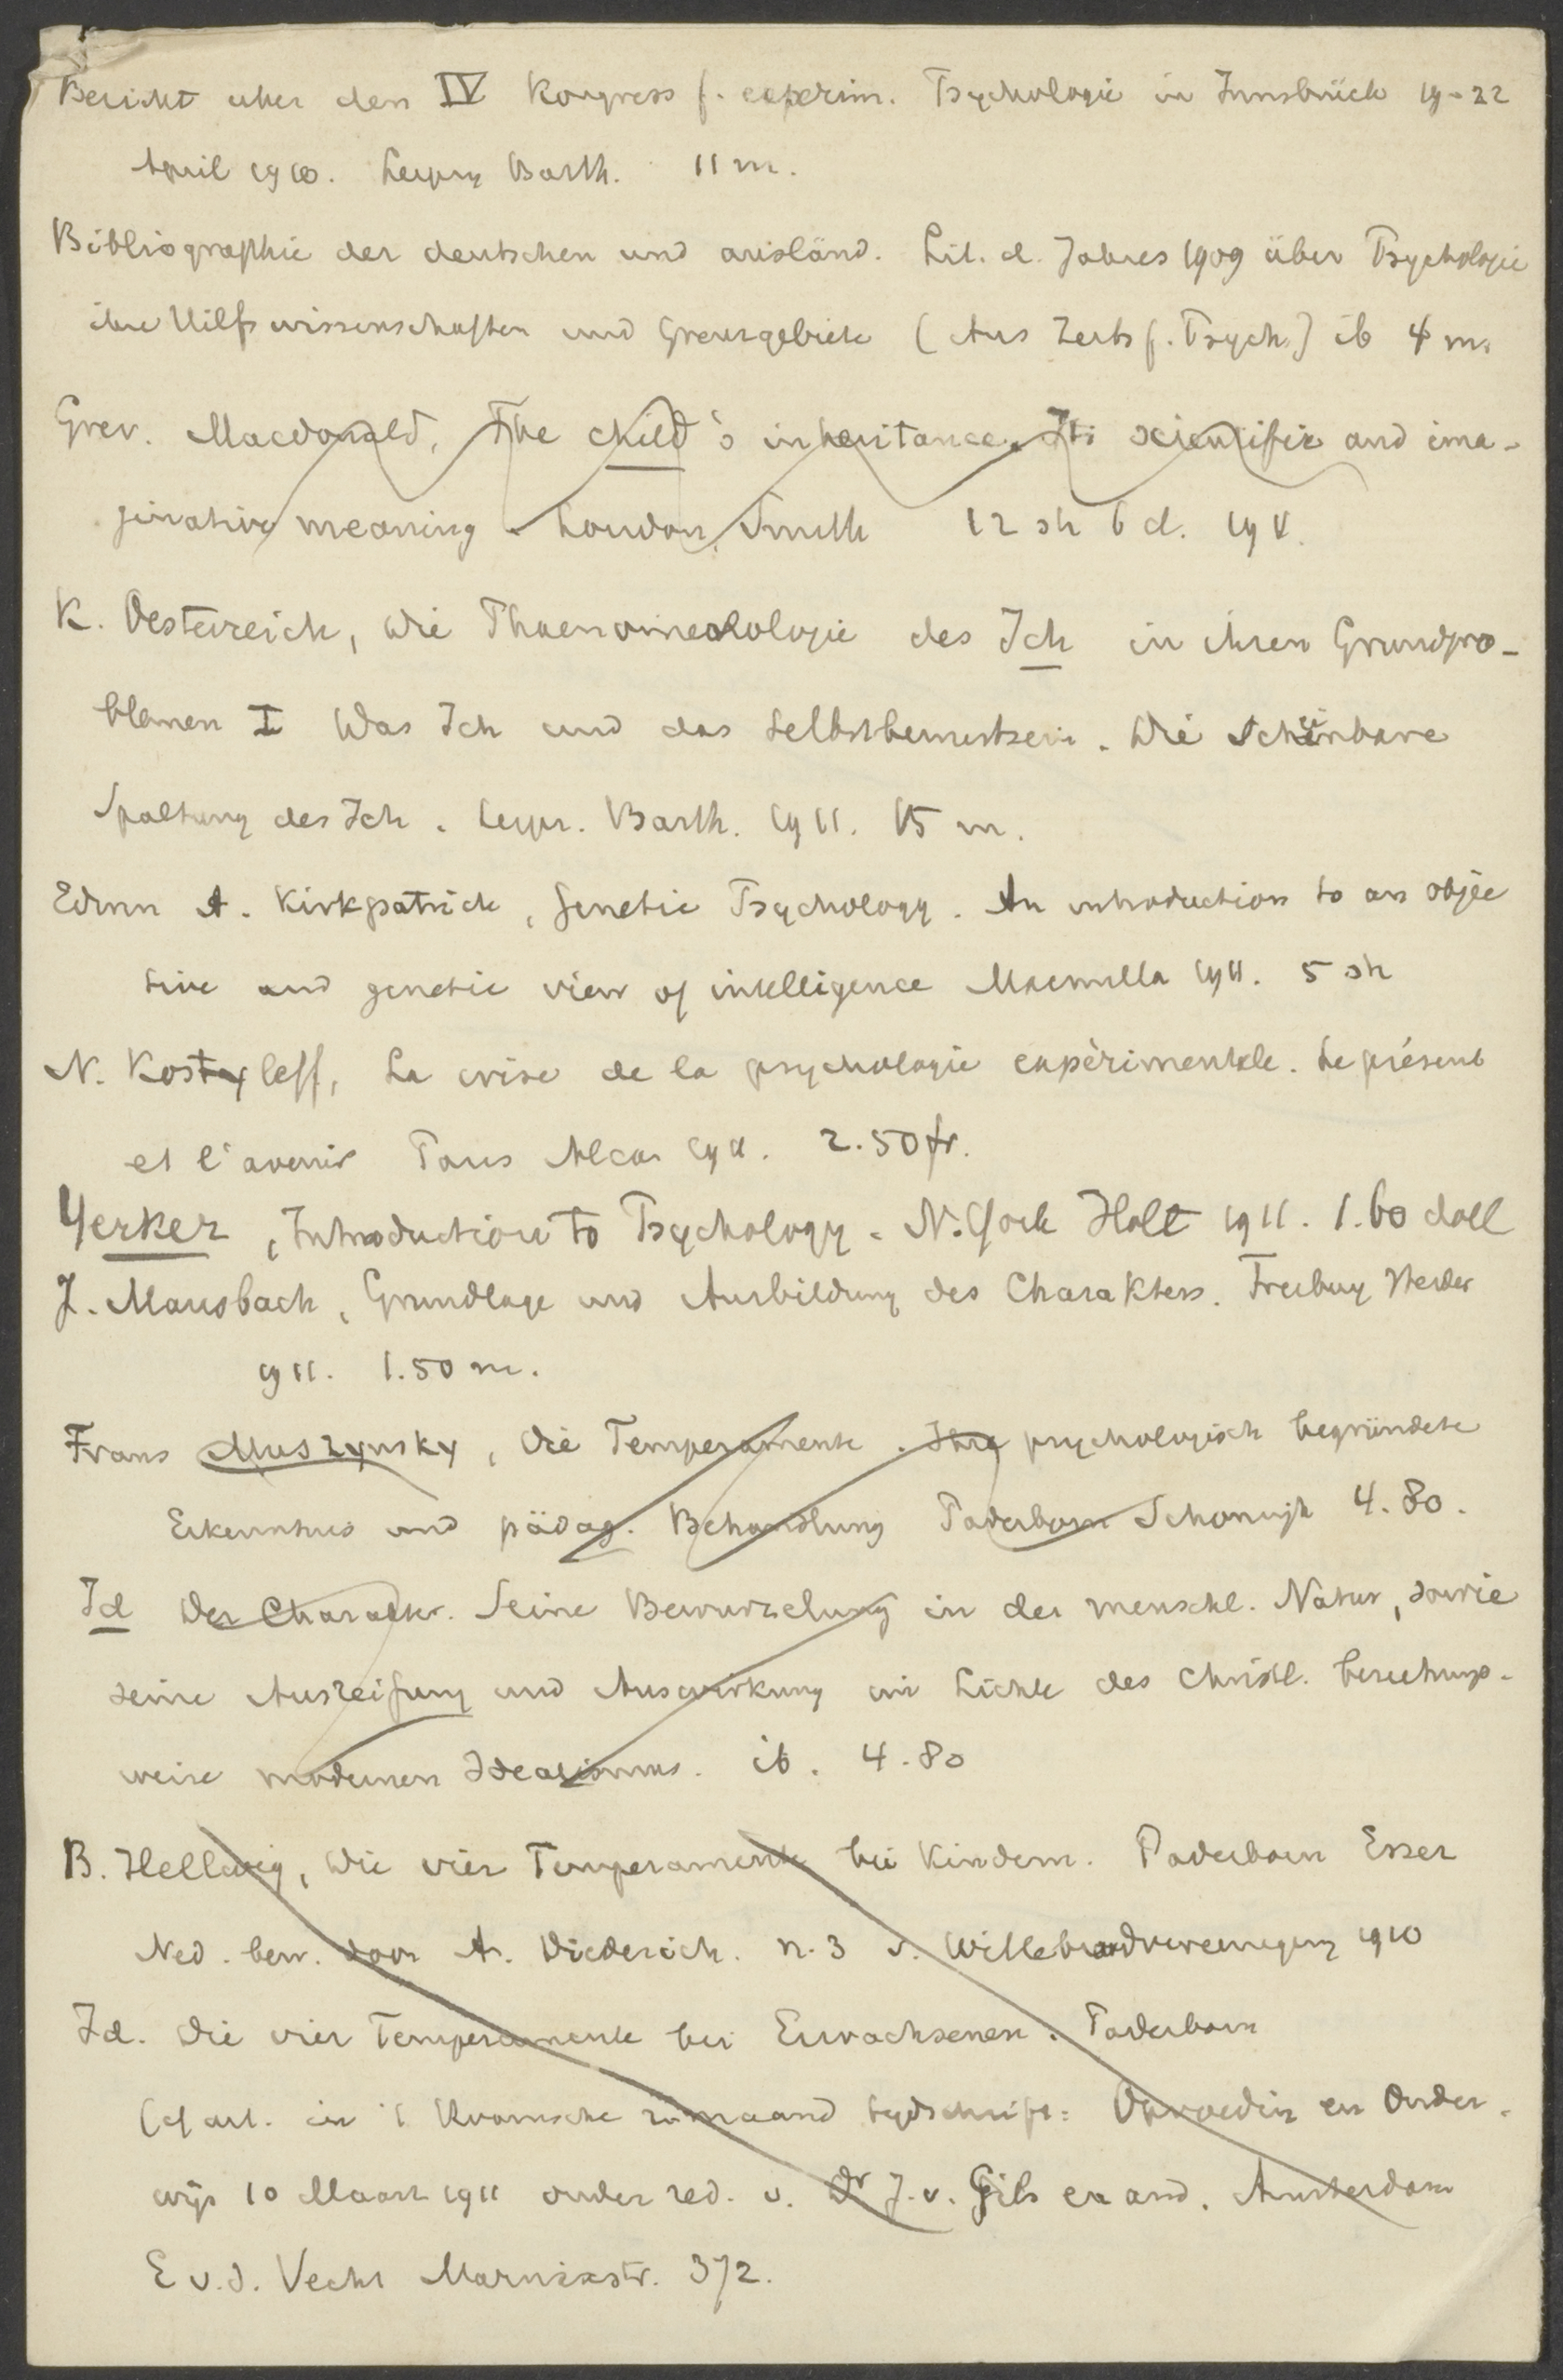 Bericht uber den IV Kongress f. experim. Psychologie in Innsbrück 19-22
April 1910. Leipzig Barth. 11 m.
Bibliographie der deutschen und ausländ. Lit. d. Jahres 1909 über Psychologie
ihre Hilfswissenschaften und Grenzgebiete (Aus Zeits f. Psych.) ib 4 m.
Grev. Macdonald, The child's inheritance. Its scientific and ima-
ginative meaning. London, Smith 12 sh 6 d. 1911.
K. Oesterreich, Die Phaenomenologie des Ich in ihren Grundpro-
blemen I Das Ich und das Selbstbewustsein. Die Scheinbare
Spaltung des Ich. Leipz. Barth. 1911. 15 m.
Edmn A. Kirkpatrick, Genetic Psychology. An introduction to an objec
tive and genetic view of intelligence Macmilla 1911. 5 sh
N. Kostyleff, La crise de la psychologie expérimentale. Le présent
et l'avenir Paris Alcan 1911. 2.50 fr.
Yerker, Introduction to Psychology. N. York Holt 1911. 1.60 doll
J. Mausbach, Grundlage und Ausbildung des Charakters. Freiburg Herder
1911. 1.50 m.
Frans Muszynsky, Die Temperamente. Ihre psychologisch begründete
Erkenntnis und pädag. Behandlung Paderborn Schoningh 4.80.
Id Der Charakter. Seine Bewurzelung in der menschl. Natur, sowie
seine Ausreifung und Auswirkung im Lichte des Christl. beziehungs-
weise modernen Idealismus. ib. 4.80
B. Hellwig, Die vier Temperamente bei Kindern. Paderborn Esser
Ned. bew. door A. Diederich. n. 3 v. Willebrordvereeniging 1910
Id. Die vier Temperamente bei Erwachsenen. Paderborn
(cf art. in 't Roomsche maand tydschrift: Opvoeding en Onder-
wijs 10 Maart 1911 onder red. v. Dr J. v. Gils en and. Amsterdam
E v. d. Vecht Marnixstr. 372.